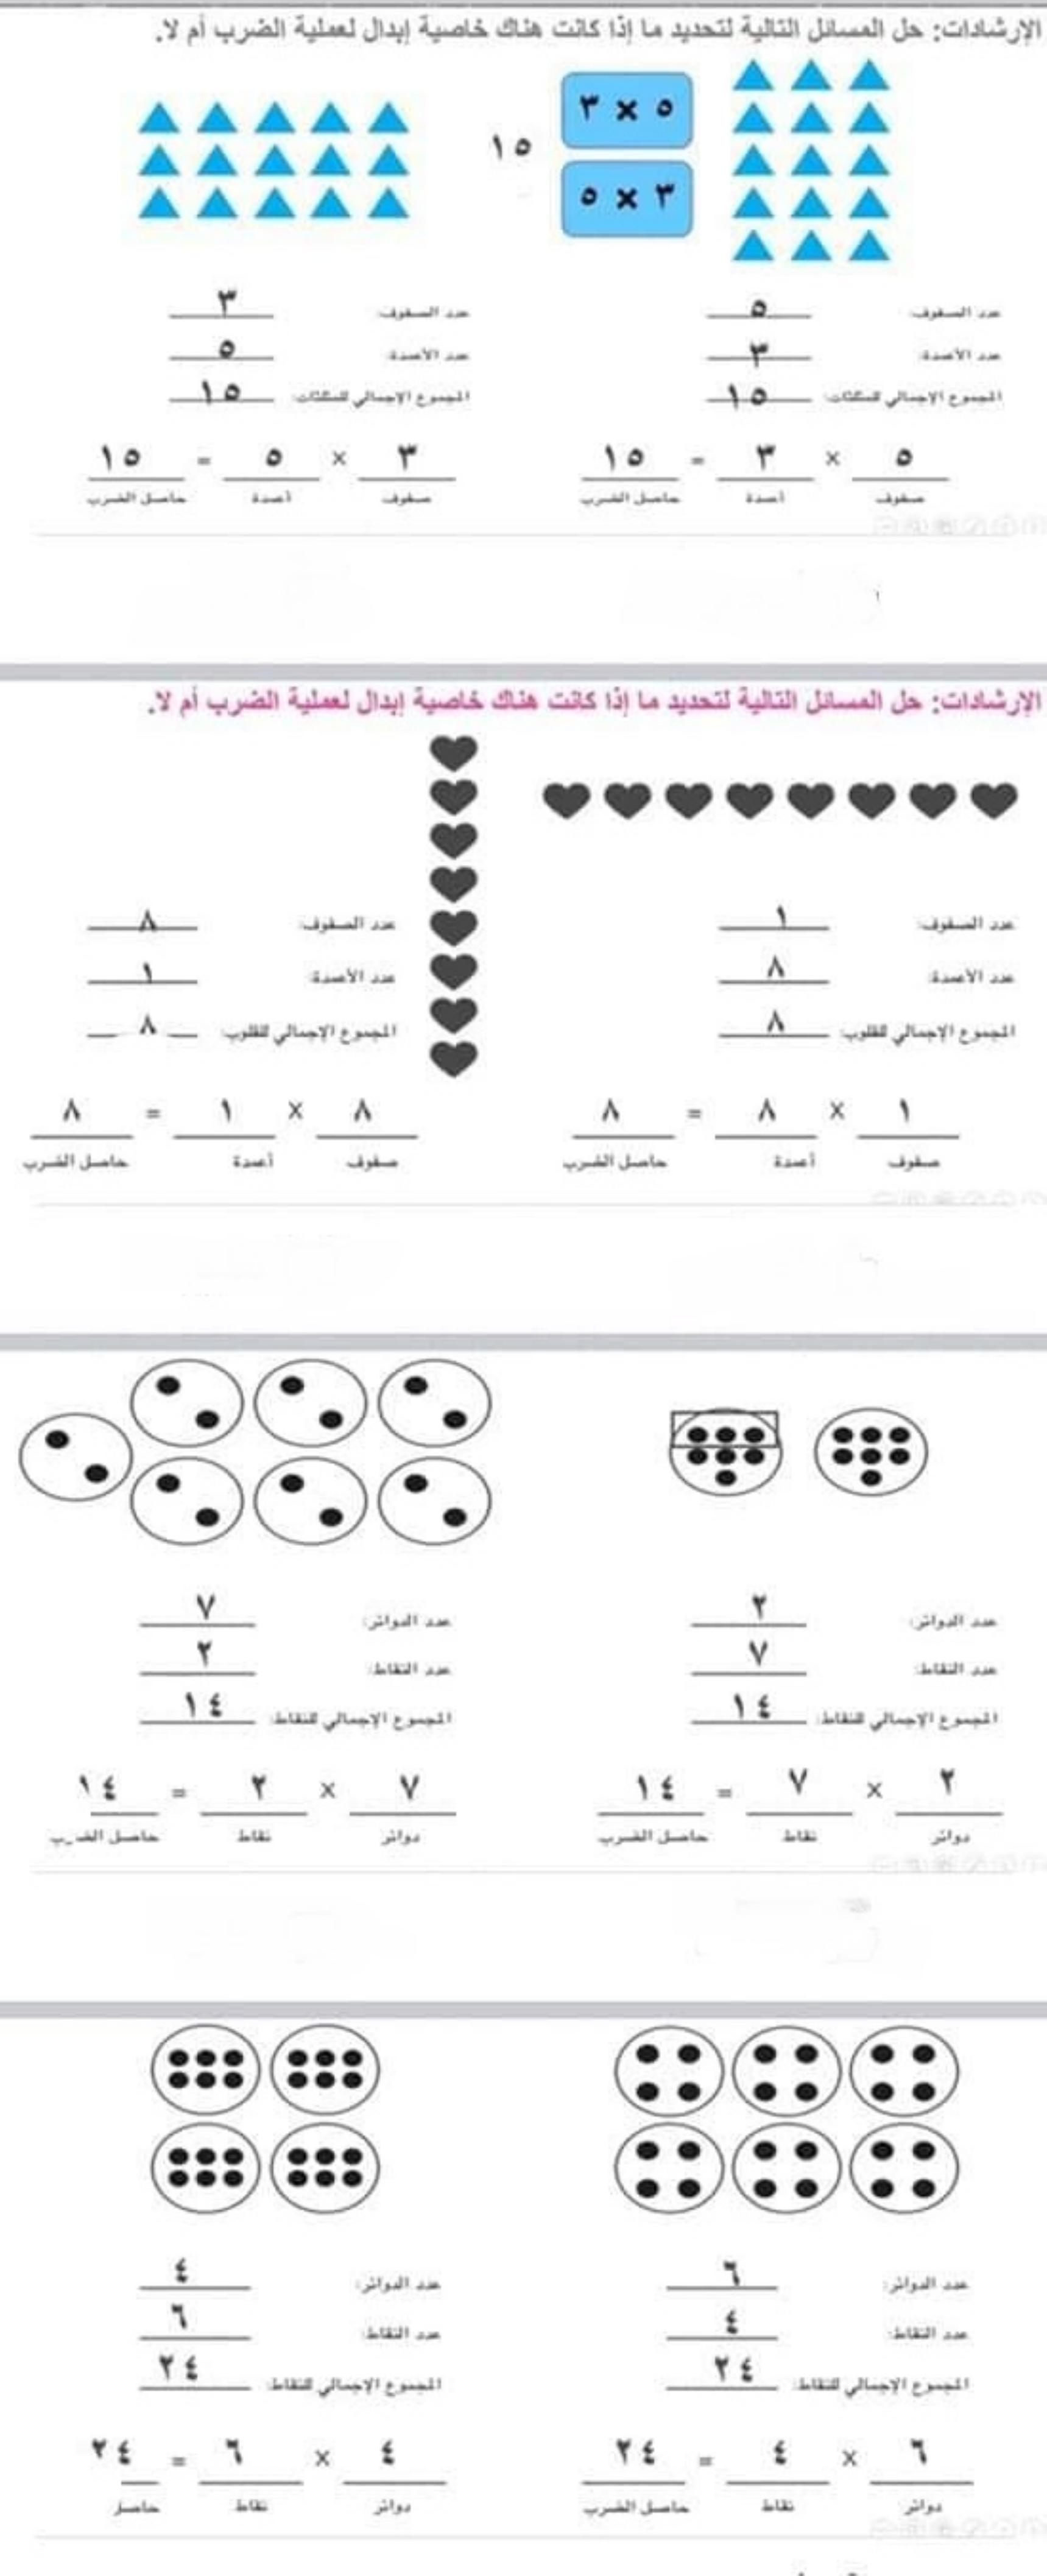 الإرشادات: حل المسائل التالية لتحديد ما إذا كانت هناك خاصية إبدال لعملية الضرب أم لا.
٥ × ٣
١٥
٣ × ٥
عدد الصفوف: ٥
عدد الأعمدة: ٣
المجموع الإجمالي للمثلثات: ١٥
٥ × ٣ = ١٥
صفوف أعمدة حاصل الضرب
عدد الصفوف: ٣
عدد الأعمدة: ٥
المجموع الإجمالي للمثلثات: ١٥
٣ × ٥ = ١٥
صفوف أعمدة حاصل الضرب
الإرشادات: حل المسائل التالية لتحديد ما إذا كانت هناك خاصية إبدال لعملية الضرب أم لا.
عدد الصفوف: ١
عدد الأعمدة: ٨
المجموع الإجمالي للقلوب: ٨
١ × ٨ = ٨
صفوف أعمدة حاصل الضرب
عدد الصفوف: ٨
عدد الأعمدة: ١
المجموع الإجمالي للقلوب: ٨
٨ × ١ = ٨
صفوف أعمدة حاصل الضرب
عدد الدوائر: ٢
عدد النقاط: ٧
المجموع الإجمالي للنقاط: ١٤
٢ × ٧ = ١٤
دوائر نقاط حاصل الضرب
عدد الدوائر: ٧
عدد النقاط: ٢
المجموع الإجمالي للنقاط: ١٤
٧ × ٢ = ١٤
دوائر نقاط حاصل الضرب
عدد الدوائر: ٦
عدد النقاط: ٤
المجموع الإجمالي للنقاط: ٢٤
٦ × ٤ = ٢٤
دوائر نقاط حاصل الضرب
عدد الدوائر: ٤
عدد النقاط: ٦
المجموع الإجمالي للنقاط: ٢٤
٤ × ٦ = ٢٤
دوائر نقاط حاصل